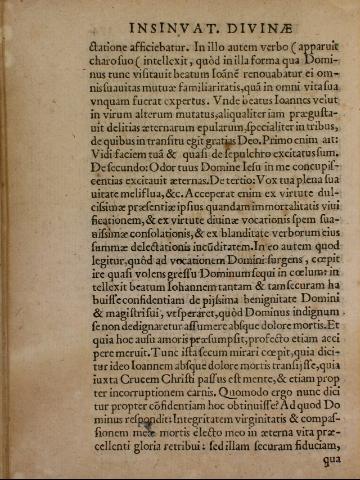 INSINVAT. DIVINÆ
ctatione afficiebatur. In illo autem verbo (apparuit
charo suo (intellexit, quòd in illa forma qua Domi-
nus tunc visitauit beatum Ioānē renouabatur ei om-
nis suauitas mutuæ familiaritatis, quā in omni vita sua
vnquam fuerat expertus. Vnde beatus Ioannes velut
in virum alterum mutatus, aliqualiter iam prægusta-
uit delitias æternarum epularum, specialiter in tribus,
de quibus in transitu egit gratias Deo. Primo enim ait:
Vidi faciem tuā & quasi de sepulchro excitatus sum.
De secundo: Odor tuus Domine Iesu in me concupis-
centias excitauit æternas. De tertio: Vox tua plena sua
uitate meliflua, &c. Acceperat enim ex virtute dul-
cissimæ præsentiæ ipsius quandam immortalitatis viui
ficationem, & ex virtute diuinæ vocationis spem sua-
uissimæ consolationis, & ex blanditate verborum eius
summæ delectationis iucūditatem. In eo autem quod
legitur, quòd ad vocationem Domini surgens, cœpit
ire quasi volens gressu Dominum sequi in cœlum: in
tellexit beatum Iohannem tantam & tam securam ha
buisse confidentiam de pijssima benignitate Domini
& magistri sui, vt speraret, quòd Dominus indignum
se non dedignaretur assumere absque dolore mortis. Et
quia hoc ausu amoris præsumpsit, profecto etiam acci
pere meruit. Tunc ista secum mirari cœpit, quia dici-
tur ideo Ioannem absque dolore mortis transijsse, quia
iuxta Crucem Christi passus est mente, & etiam prop
ter incorruptionem carnis. Quomodo ergo nunc dici
tur propter cōfidentiam hoc obtinuisse? Ad quod Do
minus respondit: Integritatem virginitatis & compas-
sionem meæ mortis electo meo in æterna vita præ-
cellenti gloria retribui: sed illam securam fiduciam,
qua